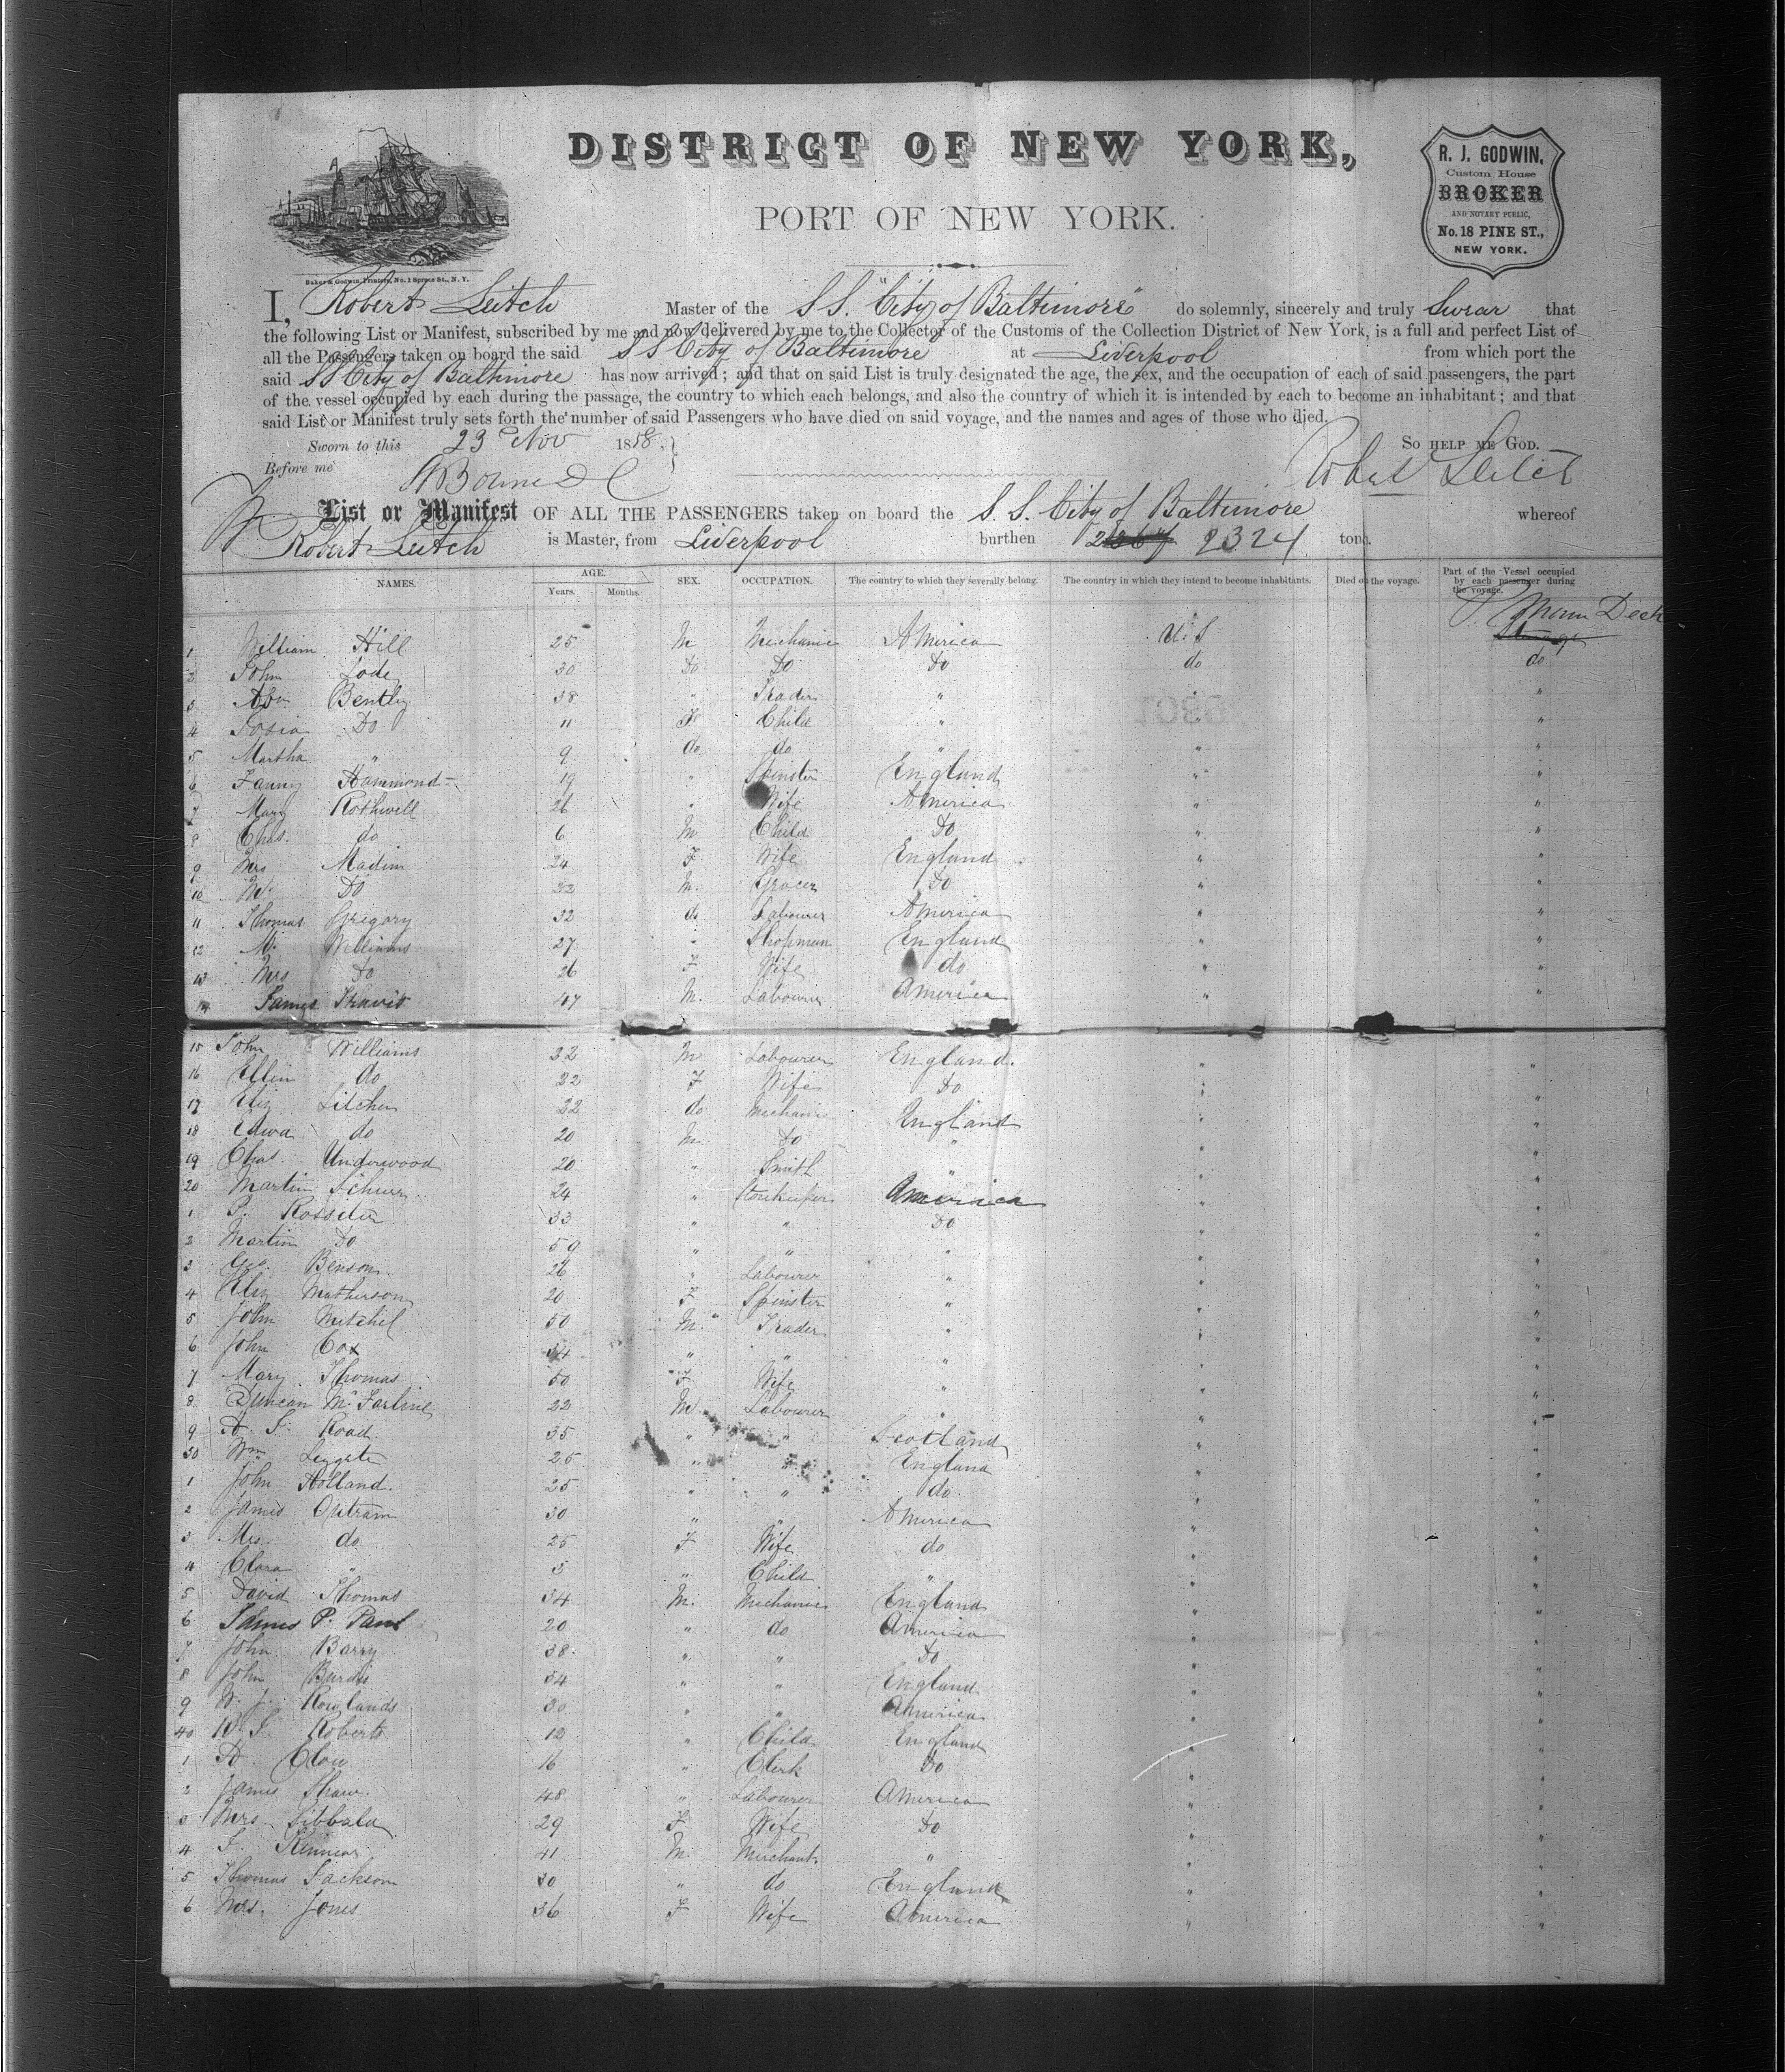 DISTRICT OF NEW YORK,
PORT OF NEW YORK.
R. J. GODWIN,
Custom House
BROKER
AND NOTARY PUBLIC,
No. 18 PINE ST.,
NEW YORK.
Baker & Godwin, Printers, No. 1 Spruce St., N. Y.
I, Robert Leitch Master of the S S. "City of Baltimore" do solemnly, sincerely and truly Swear that
the following List or Manifest, subscribed by me and now delivered by me to the Collector of the Customs of the Collection District of New York, is a full and perfect List of
all the Passengers taken on board the said S S City of Baltimore at Liverpool from which port the
said S S City of Baltimore has now arrived; and that on said List is truly designated the age, the sex, and the occupation of each of said passengers, the part
of the vessel occupied by each during the passage, the country to which each belongs, and also the country of which it is intended by each to become an inhabitant; and that
said List or Manifest truly sets forth the number of said Passengers who have died on said voyage, and the names and ages of those who died.
Sworn to this 23 Nov 1858. So HELP ME GOD.
Before me Robert Leitch
List or Manifest OF ALL THE PASSENGERS taken on board the S. S. City of Baltimore whereof
Robert Leitch is Master, from Liverpool burthen 2324 tons.
NAMES. AGE. Years. Months. SEX. OCCUPATION. The country to which they severally belong. The country in which they intend to become inhabitants. Died on the voyage. Part of the Vessel occupied by each passenger during the voyage.
Main Deck
1 William Hill 25 M Mechanic America U.S
2 John 30 Do Do Do do do
3 Bentley 38 " Trader " " "
4 Do 11 F Child " " "
5 Martha " 9 do do " " "
6 Fanny Hammond 19 " Spinster England " "
7 Mary Rothwell 26 " Wife America " "
8 Chas. do 6 M Child Do " "
9 Mrs 24 F Wife England " "
10 Do M. Grocer Do " "
11 Thomas Gregory 32 do Labourer America " "
12 Williams 27 " Shopman England " "
13 Mrs Do 26 F Wife do " "
14 James Travis 47 M. Labourer America " "
15 John Williams 32 M Labourer England. " "
16 Ellin do 22 F Wife Do " "
17 Eliz 22 do Mechanic England " "
18 Edwd do 20 M Do " " "
19 Chas. Underwood 20 " Smith " " "
20 Martin 24 " Storekeeper America " "
1 P. Rossiter 33 " " Do " "
2 Martin Do 59 " " " " "
3 Geo. Benson 26 " Labourer " " "
4 Eliz Matherson 20 F Spinster " " "
5 John Mitchel 50 M. Trader " " "
6 John Cox 34 " " " " "
7 Mary Thomas 50 F Wife " " "
8 Duncan McFarline 22 M Labourer " " "
9 Road 35 " " Scotland " "
30 Wm Leggate 25 " " England " "
1 John Holland. 25 " " do " "
2 James Outram 30 " " America " "
3 Mrs do 25 F Wife do " "
4 Clara " 3 " Child " " "
5 David Thomas 34 M. Mechanic England " "
6 James P. Paul 20 " do America " "
7 John Barry 38 " " Do " "
8 John 34 " " England " "
9 W. J. Rowlands 30 " " America " "
40 Roberts 12 " Child England " "
1 Clow 16 " Clerk Do " "
2 James Shaw. 48 " Labourer America " "
3 Mrs Sibbald 29 F Wife Do " "
4 Kinnear 41 M. Merchant " " "
5 Thomas Jackson 30 " do England " "
6 Mrs. Jones 36 F Wife America " "